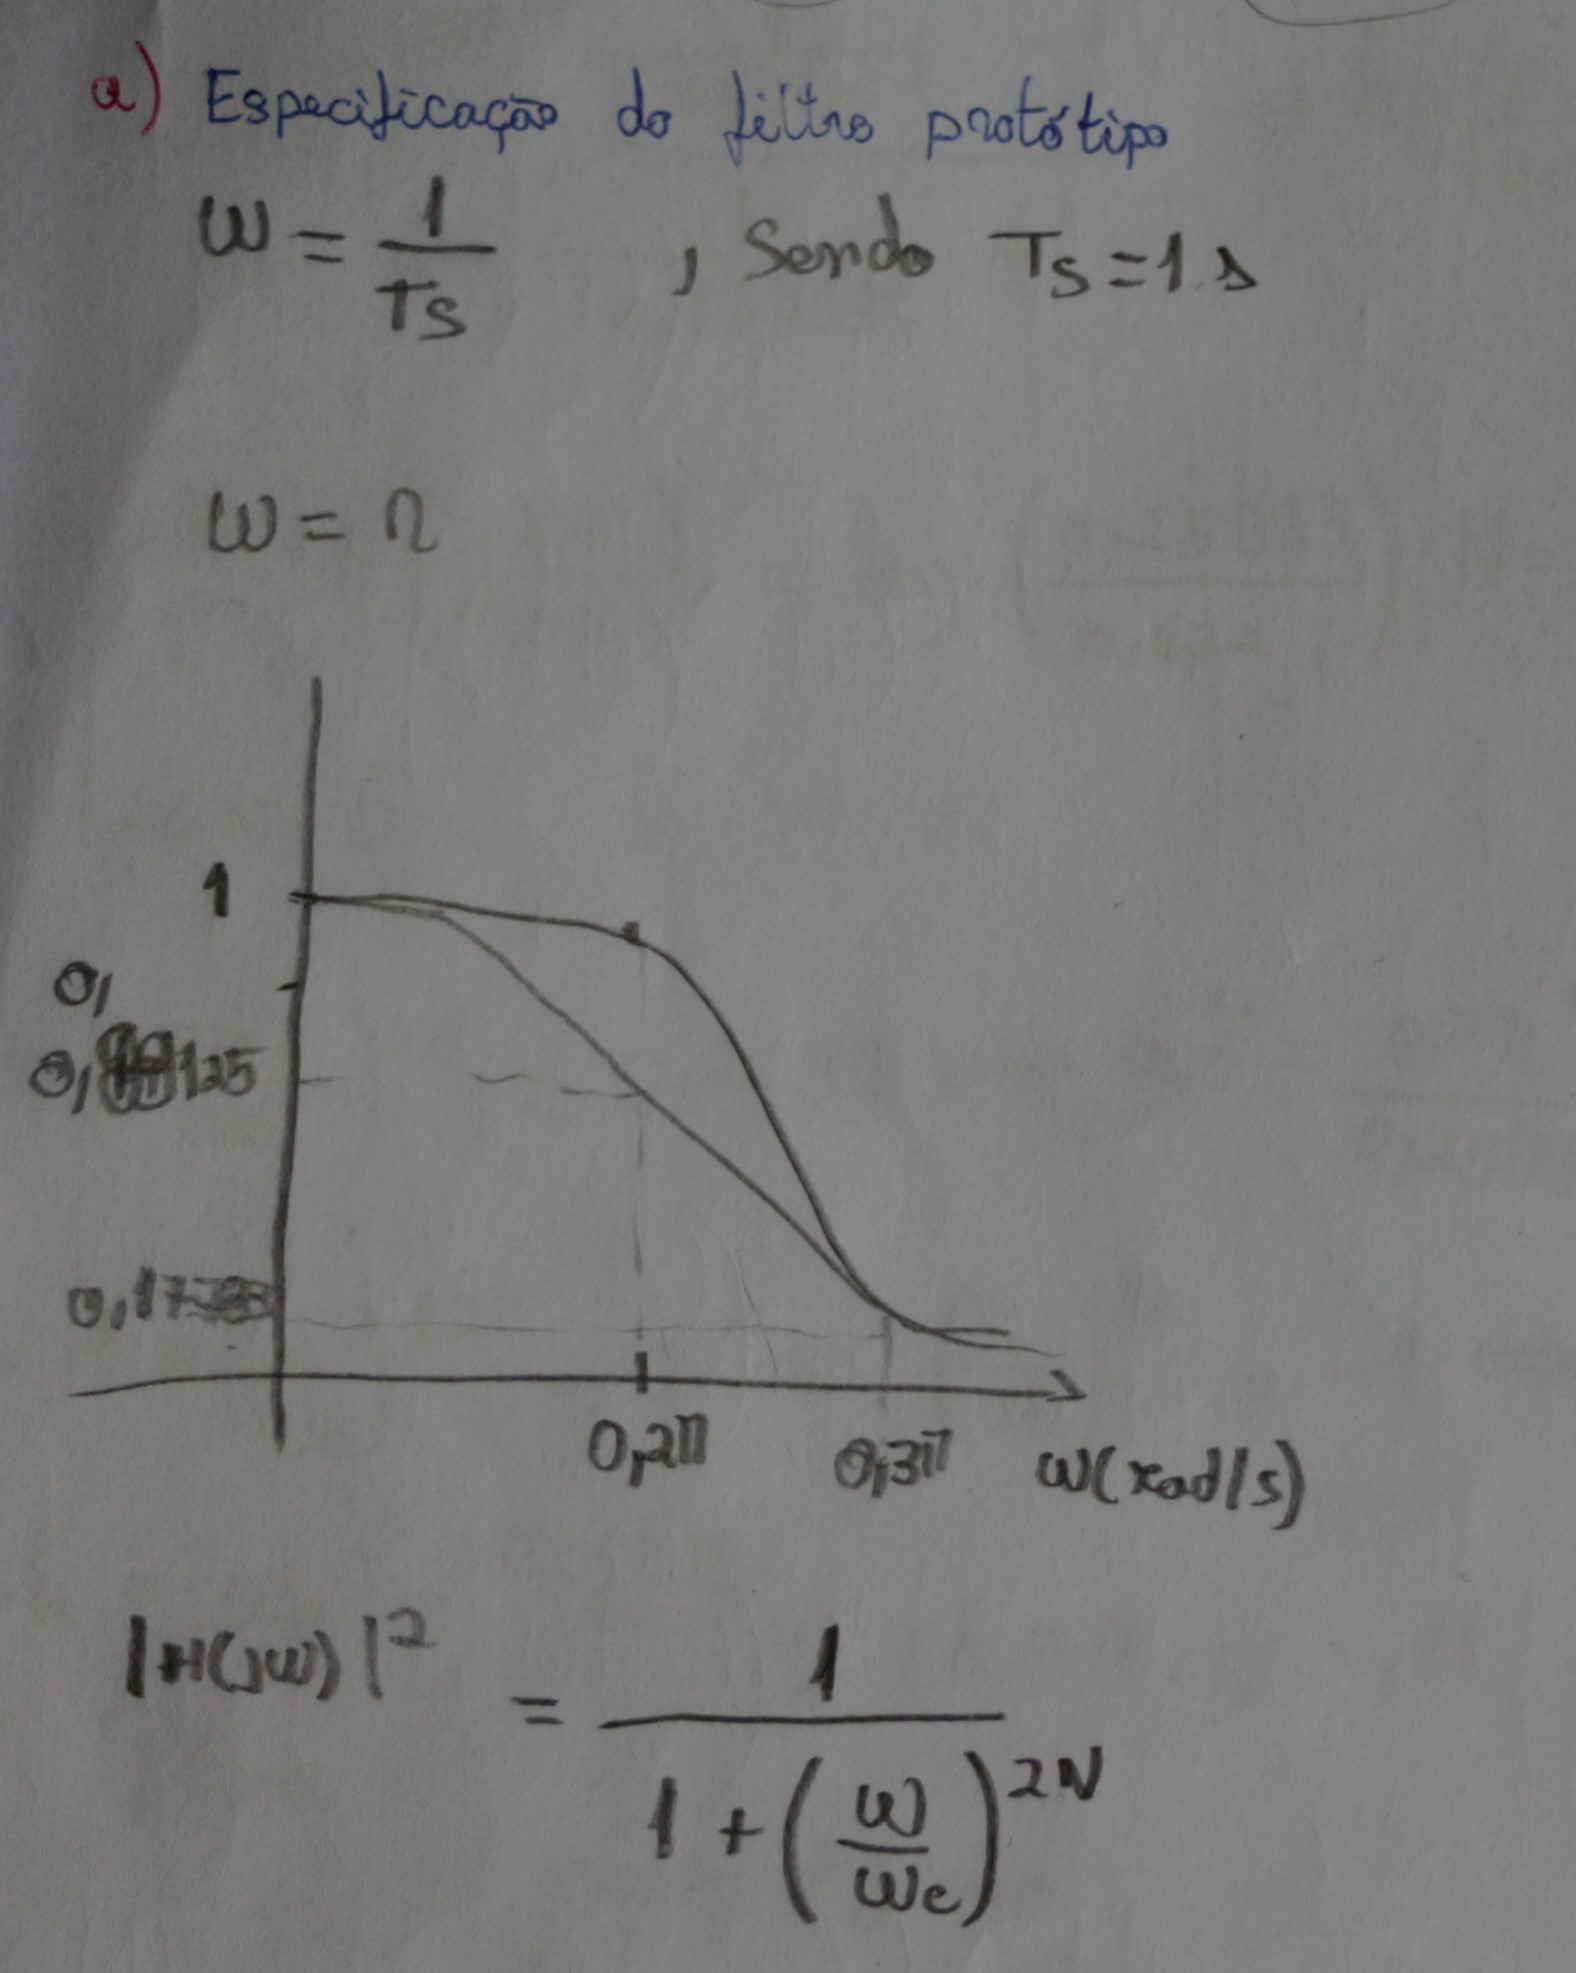 a) Especificação do filtro protótipo
ω = 1/Ts , Sendo Ts = 1 s
ω = Ω
1
0,
0, 125
0,17
0,2π 0,3π ω(rad/s)
|H(jω)|² = 1/(1 + (ω/ωc)^2N)